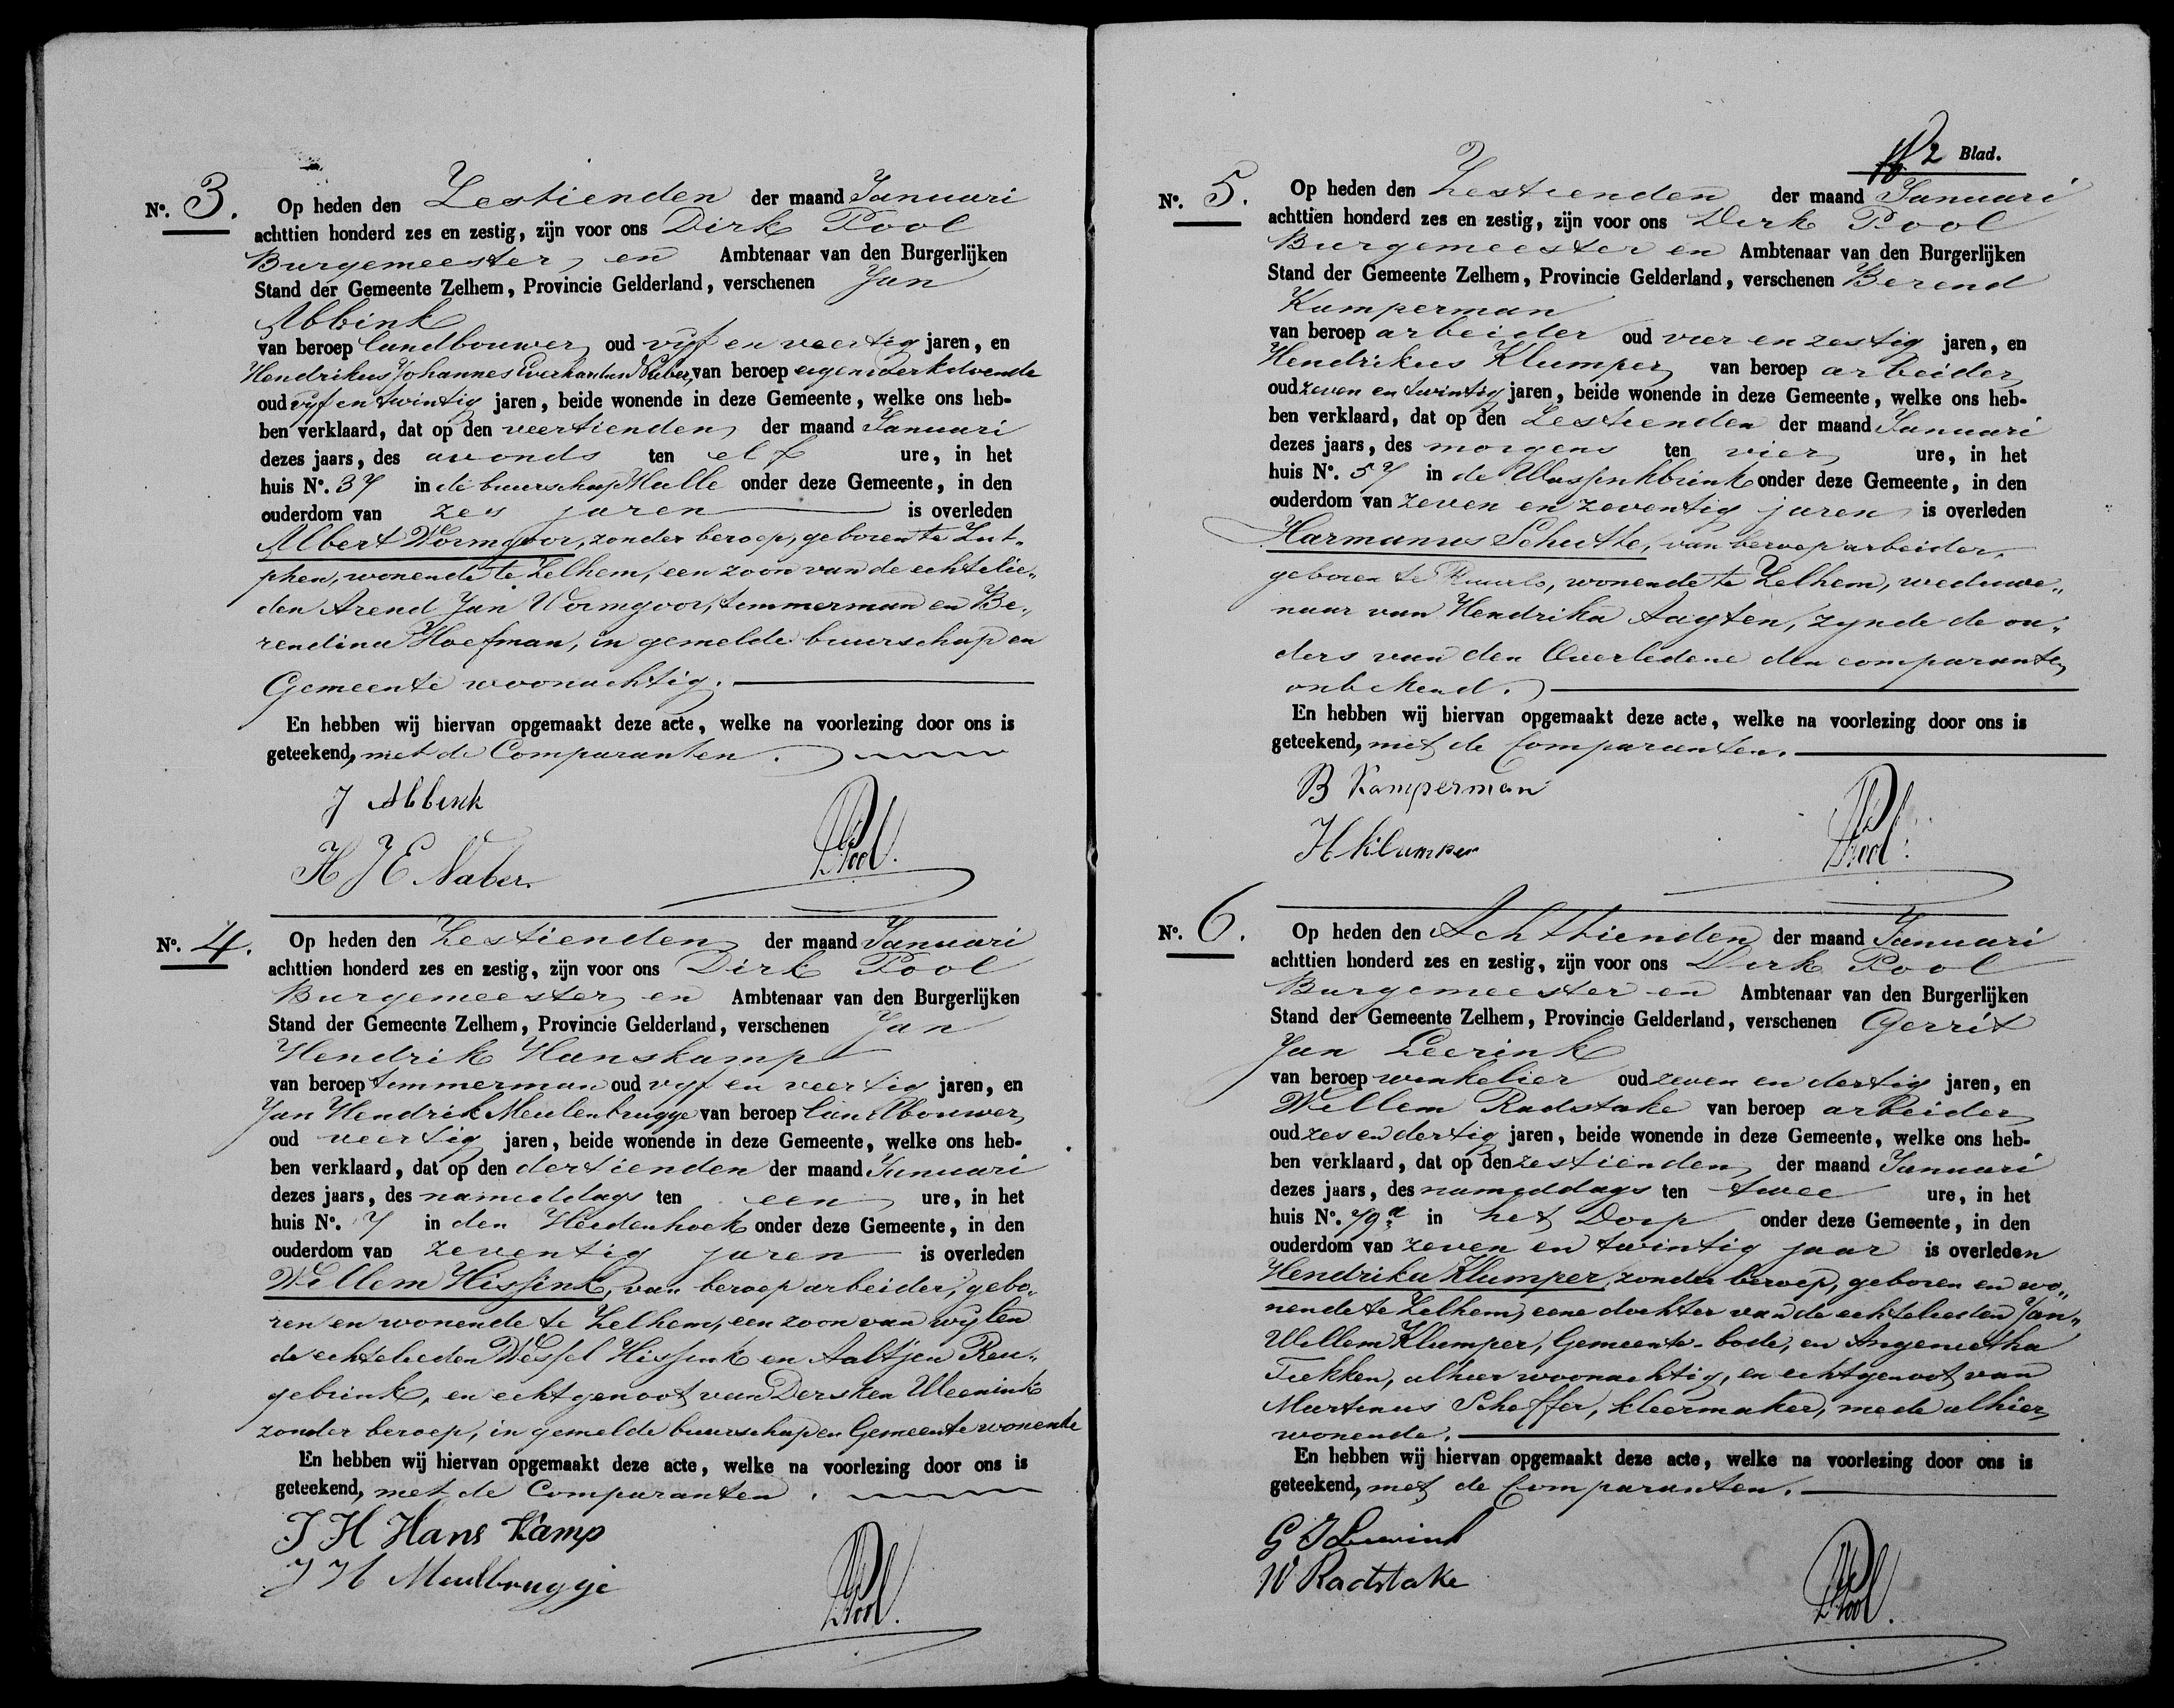 No. 3. Op heden den Zestienden der maand Januari
achttien honderd zes en zestig, zijn voor ons Dirk Pool
Burgemeester en Ambtenaar van den Burgerlijken
Stand der Gemeente Zelhem, Provincie Gelderland, verschenen Jan
Abbink
van beroep landbouwer oud vijf en veertig jaren, en
Hendrikus Johannes Everhardus Naber, van beroep eigenwerkdoende
oud vijf en twintig jaren, beide wonende in deze Gemeente, welke ons heb-
ben verklaard, dat op den veertienden der maand Januari
dezes jaars, des avonds ten elf ure, in het
huis No. 37 in de buurschap Halle onder deze Gemeente, in den
ouderdom van zes jaren is overleden
Albert Wormgoor, zonder beroep, geboren te Zut-
phen, wonende te Zelhem, een zoon van de echtelie-
den Arend Jan Wormgoor, timmerman en Be-
rendina Hoefman, in gemelde buurschap en
Gemeente woonachtig.
En hebben wij hiervan opgemaakt deze acte, welke na voorlezing door ons is
geteekend, met de Comparanten.
J Abbink
H J E Naber.
DPool.
No. 4. Op heden den Zestienden der maand Januari
achttien honderd zes en zestig, zijn voor ons Dirk Pool
Burgemeester en Ambtenaar van den Burgerlijken
Stand der Gemeente Zelhem, Provincie Gelderland, verschenen Jan
Hendrik Hanskamp
van beroep timmerman oud vijf en veertig jaren, en
Jan Hendrik Meulenbrugge van beroep landbouwer
oud veertig jaren, beide wonende in deze Gemeente, welke ons heb-
ben verklaard, dat op den dertienden der maand Januari
dezes jaars, des nameddags ten een ure, in het
huis No. 7 in den Heidenhoek onder deze Gemeente, in den
ouderdom van zeventig jaren is overleden
Willem Hissink, van beroep arbeider, gebo-
ren en wonende te Zelhem, een zoon van wijlen
de echtelieden Wessel Hissink en Aaltjen Reu-
gebrink, en echtgenoot van Dersken Wleenink
zonder beroep, in gemelde buurschap en Gemeente wonende
En hebben wij hiervan opgemaakt deze acte, welke na voorlezing door ons is
geteekend, met de Comparanten.
J H Hans Kamp
J H Meulbrugge
DPool.
2 Blad.
No. 5. Op heden den Zestienden der maand Januari
achttien honderd zes en zestig, zijn voor ons Dirk Pool
Burgemeester en Ambtenaar van den Burgerlijken
Stand der Gemeente Zelhem, Provincie Gelderland, verschenen Berend
Kamperman
van beroep arbeider oud vier en zestig jaren, en
Hendrikus Klumper van beroep arbeider
oud zeven en twintig jaren, beide wonende in deze Gemeente, welke ons heb-
ben verklaard, dat op den Zestienden der maand Januari
dezes jaars, des morgens ten vier ure, in het
huis No. 57 in de onder deze Gemeente, in den
ouderdom van zeven en zeventig jaren is overleden
Harmanus Schutte, van beroep arbeider,
geboren te Ruurlo, wonende te Zelhem, weduwe-
naar van Hendrika Aagten, zynde de ou-
ders van den Overledene den comparanten
onbekend.
En hebben wij hiervan opgemaakt deze acte, welke na voorlezing door ons is
geteekend, met de Comparanten.
B Kamperman
H Klumper
DPool.
No. 6. Op heden den Achttienden der maand Januari
achttien honderd zes en zestig, zijn voor ons Dirk Pool
Burgemeester en Ambtenaar van den Burgerlijken
Stand der Gemeente Zelhem, Provincie Gelderland, verschenen Gerrit
Jan Leerink
van beroep winkelier oud zeven en dertig jaren, en
Willem Radstake van beroep arbeider
oud zes en dertig jaren, beide wonende in deze Gemeente, welke ons heb-
ben verklaard, dat op den zestienden der maand Januari
dezes jaars, des nameddags ten twee ure, in het
huis No. 79a in het Dorp onder deze Gemeente, in den
ouderdom van zeven en twintig jaar is overleden
Hendrika Klumper, zonder beroep, geboren en wo-
nende te Zelhem, eene dochter van de echtelieden Jan
Willem Klumper, Gemeente-bode, en Angenietha
Tiekken, alhier woonachtig, en echtgenoot van
Martinus Scheffer, kleermaker, mede alhier
wonende.
En hebben wij hiervan opgemaakt deze acte, welke na voorlezing door ons is
geteekend, met de Comparanten.
G J Leerink
W Radstake
DPool.